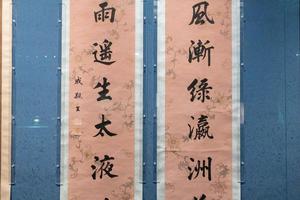 風漸綠瀛洲
雨遙生太液
成親王